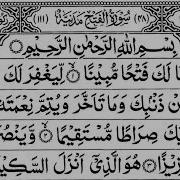 (٣٨) سُوْرَةُ الْفَتْحِ مَدَنِيَّةٌ (١١١)
بِسْمِ اللّٰهِ الرَّحْمٰنِ الرَّحِيْمِ
ا لَكَ فَتْحًا مُّبِيْنًا ۝ لِّيَغْفِرَ لَكَ
مِنْ ذَنْۢبِكَ وَمَا تَاَخَّرَ وَيُتِمَّ نِعْمَتَهٗ
يَكَ صِرَاطًا مُّسْتَقِيْمًا ۝ وَّيَنْصُ
زِيْزًا ۝ هُوَ الَّذِيْٓ اَنْزَلَ السَّكِيْ